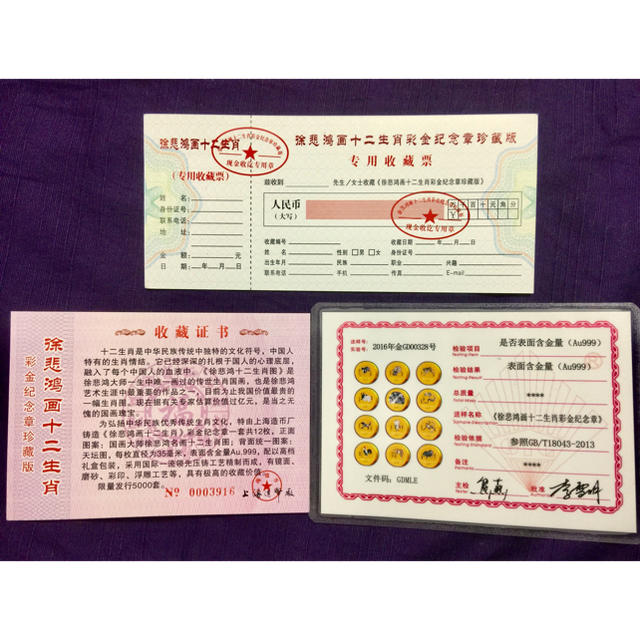 徐悲鸿画十二生肖
(专用收藏票)
姓 名:
身份证号:
联系电话:
地 址:
金 额: 元
日 期: 年 月 日
现金收讫专用章
徐悲鸿画十二生肖彩金纪念章珍藏版
专用收藏票
兹收到 先生/女士收藏《徐悲鸿画十二生肖彩金纪念章珍藏版》
人民币
(大写)
千百十元角分
现金收讫专用章
收藏编号 收藏日期 年 月 日
姓名 性别 □男 □女 身份证号
出生年月 民族 职业 兴趣
联系电话 手机 传真 E-mail:
徐悲鸿画十二生肖
彩金纪念章珍藏版
收藏证书
十二生肖是中华民族传统中独特的文化符号,中国人
特有的生肖情结。它已经深深的扎根于国人的心理底层,
融入了每个中国人的血液中。《徐悲鸿十二生肖图》是
徐悲鸿大师一生中唯一画过的传世生肖国画,也是徐悲鸿
艺术生涯中最重要的作品之一,目前为止我国价值最贵的
一幅生肖图。现在据有关专家估算价值过亿元,是当之无
愧的国画瑰宝。
为弘扬中华民族优秀传统生肖文化,特由上海造币厂
铸造《徐悲鸿画十二生肖》彩金纪念章一套共12枚,正面
图案:国画大师徐悲鸿名画十二生肖图;背面统一图案:
天坛图,每枚直径为35毫米,表面含金量Au.999,配以高档
礼盒包装,采用国际一流领先压铸工艺精制而成,有镜面、
磨砂、彩印、浮雕工艺等,具有极高的收藏价值。
限量发行5000套。
№ 0003916
送样号:
实验号:
2016年金GD00328号
文件码:GDMLE
检验项目
是否表面含金量(Au999)
检验结果
表面含金量(Au999)
总质量
****
送样名称
《徐悲鸿画十二生肖彩金纪念章》
检验依据
参照GB/T18043-2013
备注
****
主检
批准